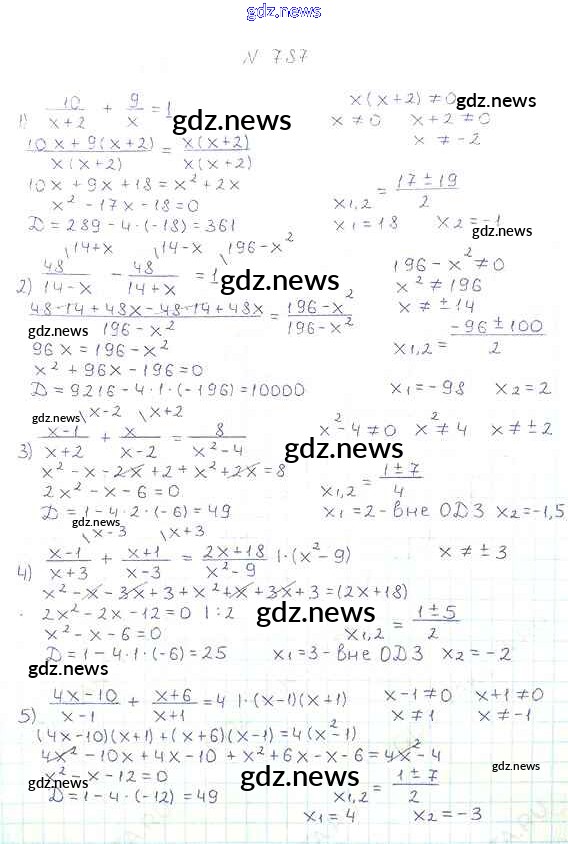 gdz.news
N 787
1) 10/(x+2) + 9/x = 1 gdz.news x(x+2) ≠ 0 gdz.news
x ≠ 0 x+2 ≠ 0
(10x + 9(x+2))/(x(x+2)) = (x(x+2))/(x(x+2)) x ≠ -2
10x + 9x + 18 = x² + 2x
x² - 17x - 18 = 0 x1,2 = (17 ± 19)/2
D = 289 - 4·(-18) = 361 x1 = 18 x2 = -1
gdz.news
\14+x \14-x \196-x²
2) 48/(14-x) - 48/(14+x) = 1 gdz.news 196 - x² ≠ 0
x² ≠ 196
(48·14 + 48x - 48·14 + 48x)/(196-x²) = (196-x²)/(196-x²) x ≠ ±14
gdz.news
96x = 196 - x² x1,2 = (-96 ± 100)/2
x² + 96x - 196 = 0
D = 9216 - 4·1·(-196) = 10000 x1 = -98 x2 = 2
gdz.news \x-2 \x+2
3) (x-1)/(x+2) + x/(x-2) = 8/(x²-4) x² - 4 ≠ 0 x² ≠ 4 x ≠ ±2
gdz.news
x² - x - 2x + 2 + x² + 2x = 8
2x² - x - 6 = 0 x1,2 = (1 ± 7)/4
D = 1 - 4·2·(-6) = 49 x1 = 2 - вне ОДЗ x2 = -1,5
gdz.news
\x-3 \x+3
4) (x-1)/(x+3) + (x+1)/(x-3) = (2x+18)/(x²-9) |·(x²-9) x ≠ ±3
x² - x - 3x + 3 + x² + x + 3x + 3 = (2x+18)
2x² - 2x - 12 = 0 |:2 gdz.news
x² - x - 6 = 0 x1,2 = (1 ± 5)/2
D = 1 - 4·1·(-6) = 25 x1 = 3 - вне ОДЗ x2 = -2
gdz.news
5) (4x-10)/(x-1) + (x+6)/(x+1) = 4 |·(x-1)(x+1) x-1 ≠ 0 x+1 ≠ 0
x ≠ 1 x ≠ -1
(4x-10)(x+1) + (x+6)(x-1) = 4(x²-1)
4x² - 10x + 4x - 10 + x² + 6x - x - 6 = 4x² - 4
gdz.news
x² - x - 12 = 0 gdz.news x1,2 = (1 ± 7)/2
gdz.news
D = 1 - 4·(-12) = 49
x1 = 4 x2 = -3